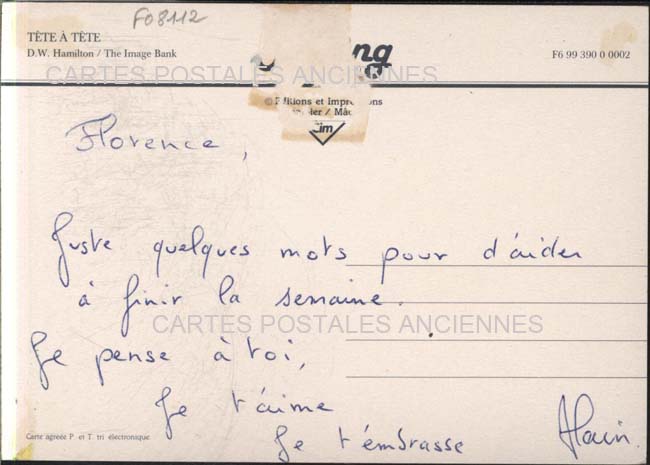 F08112
TÊTE À TÊTE
D.W. Hamilton / The Image Bank
F6 99 390 0 0002
CARTES POSTALES ANCIENNES
© Editions et Impressions
Cim
Florence,
Juste quelques mots pour d'aider
à finir la semaine.
CARTES POSTALES ANCIENNES
Je pense à toi,
Je t'aime
Je t'embrasse
Alain.
Carte agréée P et T. tri électronique